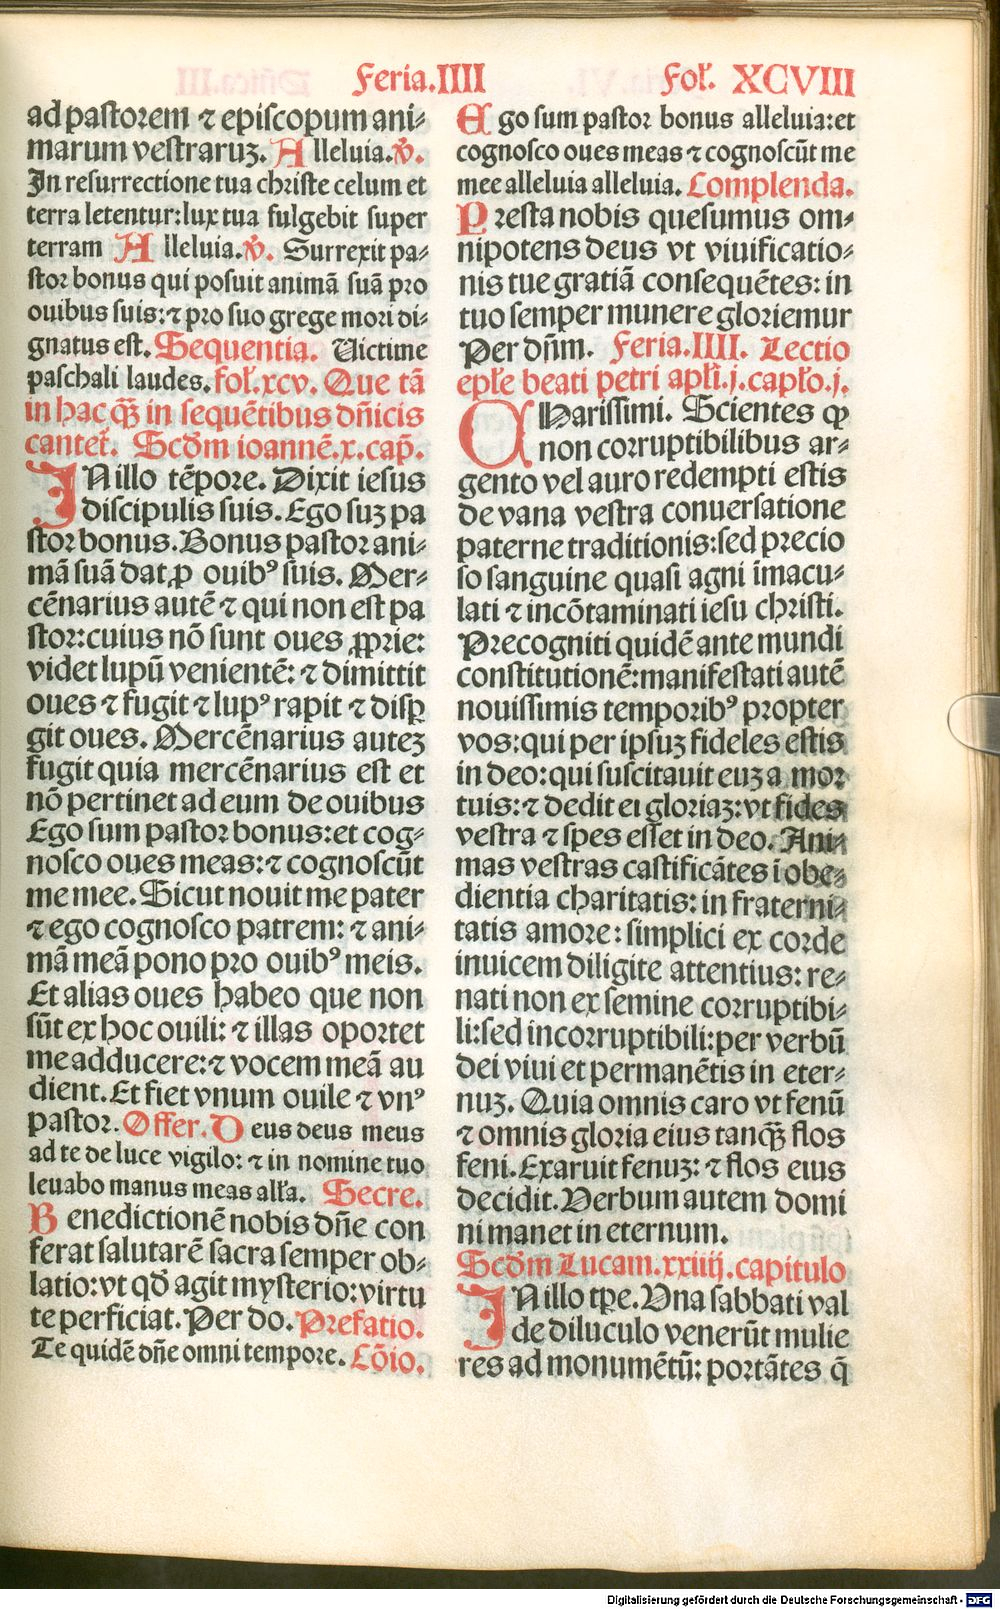 Feria.IIII
Fol'. XCVIII
ad pastorem ⁊ episcopum ani⸗
marum vestraruꝫ. Alleluia.℣.
In resurrectione tua christe celum et
terra letentur:lux tua fulgebit super
terram Alleluia.℣. Surrexit pa⸗
stor bonus qui posuit animã suã pro
ouibus suis:⁊ pro suo grege mori di⸗
gnatus est. Sequentia. Uictime
paschali laudes.fol'.xcv. Que tã
in hac qȝ̃ in sequẽtibus dñicis
cantet'. Scďm ioannẽ.x.cap̃.
IN illo tẽpore. Dixit iesus
discipulis suis. Ego suꝫ pa
stor bonus. Bonus pastor ani⸗
mã suã dat ꝓ ouibꝰ suis. Mer⸗
cẽnarius autẽ ⁊ qui non est pa
stor:cuius nõ sunt oues ꝓprie:
videt lupũ venientẽ: ⁊ dimittit
oues ⁊ fugit ⁊ lupꝰ rapit ⁊ disꝑ
git oues. Mercẽnarius auteꝫ
fugit quia mercẽnarius est et
nõ pertinet ad eum de ouibus
Ego sum pastor bonus:et cog⸗
nosco oues meas:⁊ cognoscũt
me mee. Sicut nouit me pater
⁊ ego cognosco patrem: ⁊ ani⸗
mã meã pono pro ouibꝰ meis.
Et alias oues habeo que non
sũt ex hoc ouili: ⁊ illas oportet
me adducere:⁊ vocem meã au
dient. Et fiet vnum ouile ⁊ vnꝰ
pastor. Offer. Deus deus meus
ad te de luce vigilo: ⁊ in nomine tuo
leuabo manus meas all'a. Secre.
Benedictionẽ nobis dñe con
ferat salutarẽ sacra semper ob⸗
latio:vt qď agit mysterio:virtu
te perficiat. Per do. Prefatio.
Te quidẽ dñe omni tempore. Cõio.
Ego sum pastor bonus alleluia:et
cognosco oues meas ⁊ cognoscũt me
mee alleluia alleluia. Complenda.
Presta nobis quesumus om⸗
nipotens deus vt viuificatio⸗
nis tue gratiã consequẽtes: in
tuo semper munere gloriemur
Per dñm. Feria.IIII. Lectio
epl'e beati petri apl'i.j.capl'o.j.
CHarissimi. Scientes ꝙ
non corruptibilibus ar⸗
gento vel auro redempti estis
de vana vestra conuersatione
paterne traditionis:sed precio
so sanguine quasi agni ĩmacu⸗
lati ⁊ incõtaminati iesu christi.
Precogniti quidẽ ante mundi
constitutionẽ:manifestati autẽ
nouissimis temporibꝰ propter
vos:qui per ipsuꝫ fideles estis
in deo:qui suscitauit euꝫ a mor
tuis:⁊ dedit ei gloriaꝫ:vt fides
vestra ⁊ spes esset in deo. Ani⸗
mas vestras castificãtes ĩ obe⸗
dientia charitatis: in fraterni⸗
tatis amore: simplici ex corde
inuicem diligite attentius: re⸗
nati non ex semine corruptibi⸗
li:sed incorruptibili:per verbũ
dei viui et permanẽtis in eter⸗
nuꝫ. Quia omnis caro vt fenũ
⁊ omnis gloria eius tanqȝ̃ flos
feni. Exaruit fenuꝫ: ⁊ flos eius
decidit. Verbum autem domi
ni manet in eternum.
Scďm Lucam.xxiiij.capitulo
IN illo tp̃e. Una sabbati val
de diluculo venerũt mulie
res ad monumẽtũ: portãtes q̃
Digitalisierung gefördert durch die Deutsche Forschungsgemeinschaft - DFG